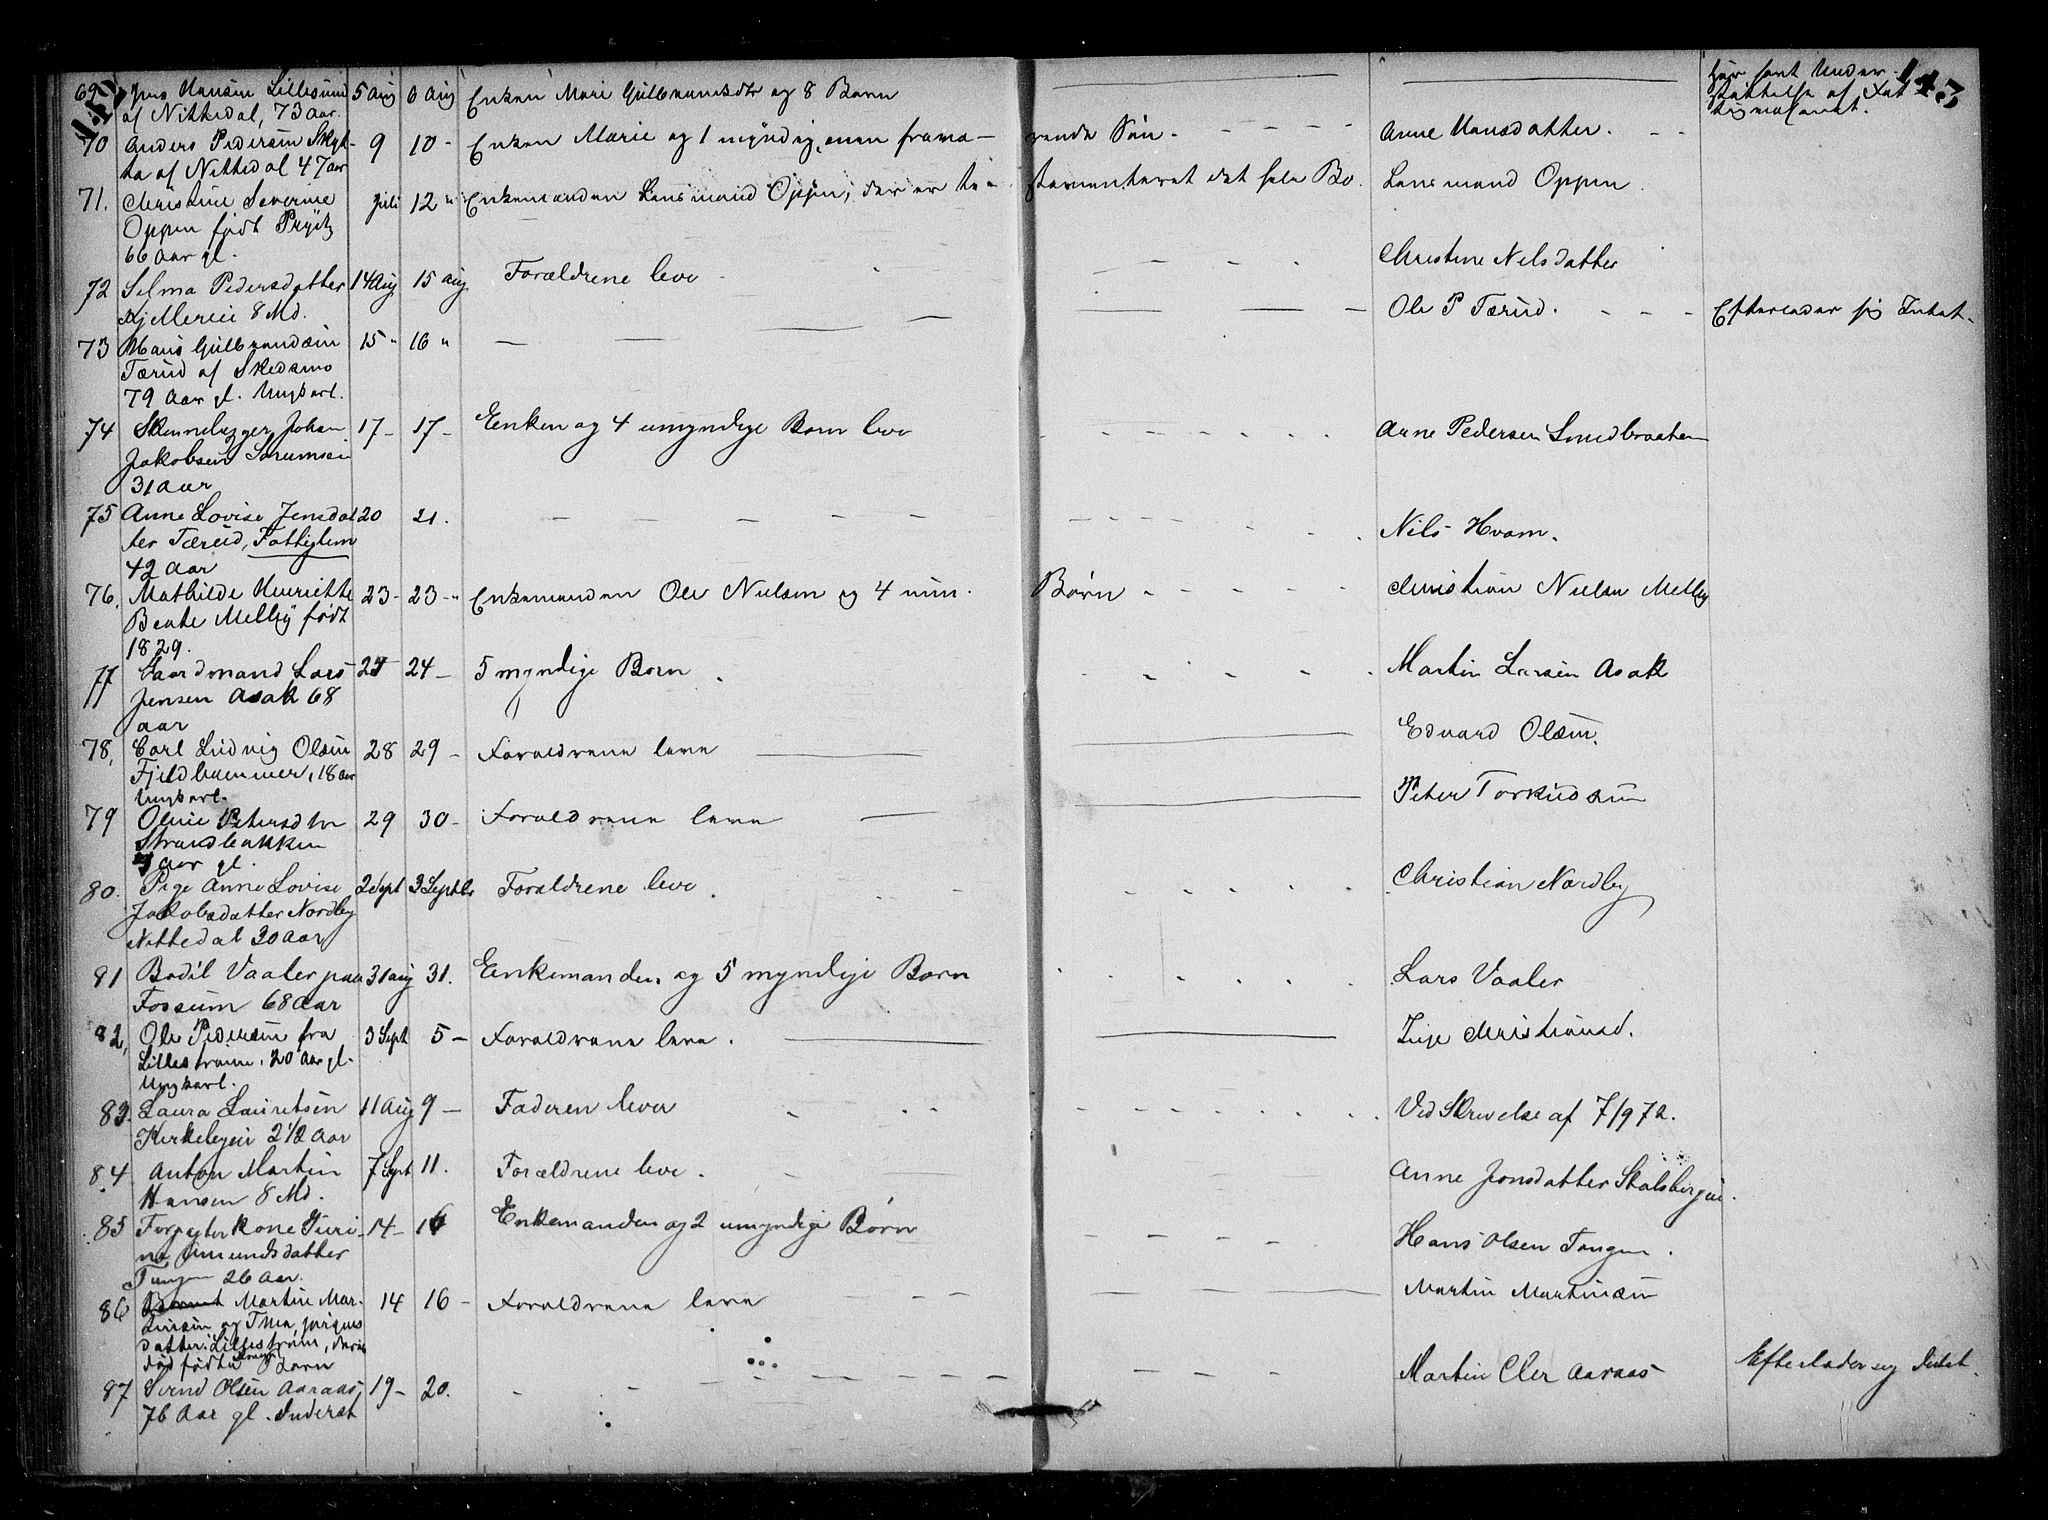 142
143
69 Jens Hansen Lillesund 5 Aug 6 Aug Enken Mari Gulbrandsdtr og 8 Børn Har faat Under-
af Nittedal, 73 Aar. støttelse af Fat
tigvæsenet.
70 Anders Pedersen Skyt- 9 10 - Enken Marie og 1 myndig, men fravæ- rende Søn. Anne Hansdatter.
ta af Nittedal 47 aar
71. Christine Severine Juli 12 " Enkemanden Lensmand Oppen; der er te- stamenteret det hele Bo. Lensmand Oppen
Oppen født Prÿtz
66 Aar gl.
72 Selma Pedersdatter 14 Aug 15 Aug Forældrene leve Christine Nilsdatter
Kjellereie 8 Md.
73 Hans Gulbrandsen 15 " 16 " Ole P Tærud. Efterlader sig Intet.
Tærud af Skedsmo
79 Aar gl. Ungkarl.
74 Skinnelægger Johan 17 - 17 - Enken og 4 umyndige Børn leve Arne Pedersen Smedbraaten
Jakobsen Sørumsei
31 Aar
75 Anne Lovise Jensdat 20 21. Nils Hvam.
ter Tærud, Fattiglem
42 Aar
76. Mathilde Henriette 23 - 23 - " Enkemanden Ole Nielsen og 4 um. Børn Christian Nielsen Melby
Beate Melby født
1829.
77 Gaardmand Lars 24 24 - 5 myndige Børn Martin Larsen Asak
Jensen Asak 68
aar
78, Carl Ludvig Olsen 28 29 - Forældrene leve Edvard Olsen.
Fjeldhammer, 18 aar
Ungkarl.
79 Oline Petersdtr 29 30 - Forældrene leve Peter Torkildsen
Strandbakken
aar gl.
80. Pige Anne Lovise 2 Sept 3 Septbr Forældrene leve. Christian Nordby
Jakobsdatter Nordby
Nittedal 30 Aar
81 Bodil Vaaler paa 31 aug 31. Enkemanden og 5 myndige Børn Lars Vaaler
Fossum 68 Aar
82, Ole Pedersen fra 3 Sept 5 - Forældrene leve. Inge Christiansd.
Lillestrøm. 20 Aar gl.
Ungkarl.
83. Laura Lauritsen 11 Aug 9 - Faderen lever Ved Skrivelse af 7/9 72.
Kirkebyeie 2 1/2 Aar
84 Anton Martin 7 Sept 11. Forældrene leve. Anne Jonsdatter Stalsbergeie.
Hansen 8 Md.
85 Forpagterkone Guri- 14 - 16 Enkemanden og 2 umyndige Børn Hans Olsen Tangen.
ne Amundsdatter
Tangen 26 Aar.
86 Martin Mar- 14 16 - Forældrene leve Martin Martinsen
tinsen og Thea Jørgens
datter: Lillestrøm, deres
død fødte Drenge Barn
87 Svend Olsen Aaraas, 19 - 20. Martin Aaraas Efterlader sig Intet.
76 Aar gl. Inderst